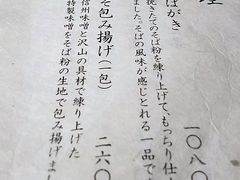 ばがき
挽きたてのそば粉を練り上げて、もっちり仕
ました。そばの風味が感じとれる一品で
一〇八〇
そ包み揚げ（一包）
二六〇
信州味噌と沢山の具材で練り上げた
特製味噌をそば粉の生地で包み揚げまし